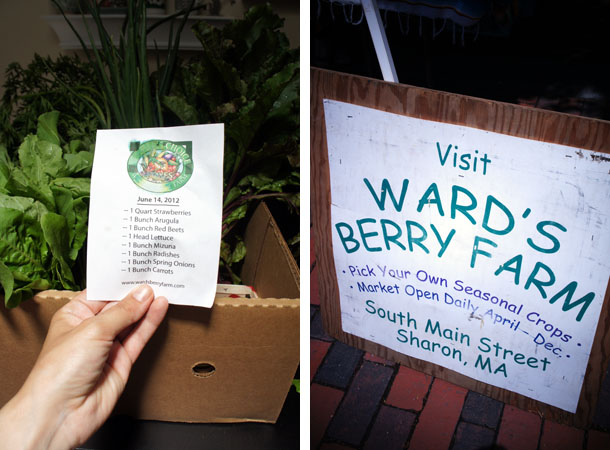 CHOICE
June 14, 2012
– 1 Quart Strawberries
– 1 Bunch Arugula
– 1 Bunch Red Beets
– 1 Head Lettuce
– 1 Bunch Mizuna
– 1 Bunch Radishes
– 1 Bunch Spring Onions
– 1 Bunch Carrots
www.wardsberryfarm.com
Visit
WARD'S
BERRY FARM
• Pick Your Own Seasonal Crops •
• Market Open Daily April – Dec. •
South Main Street
Sharon, MA